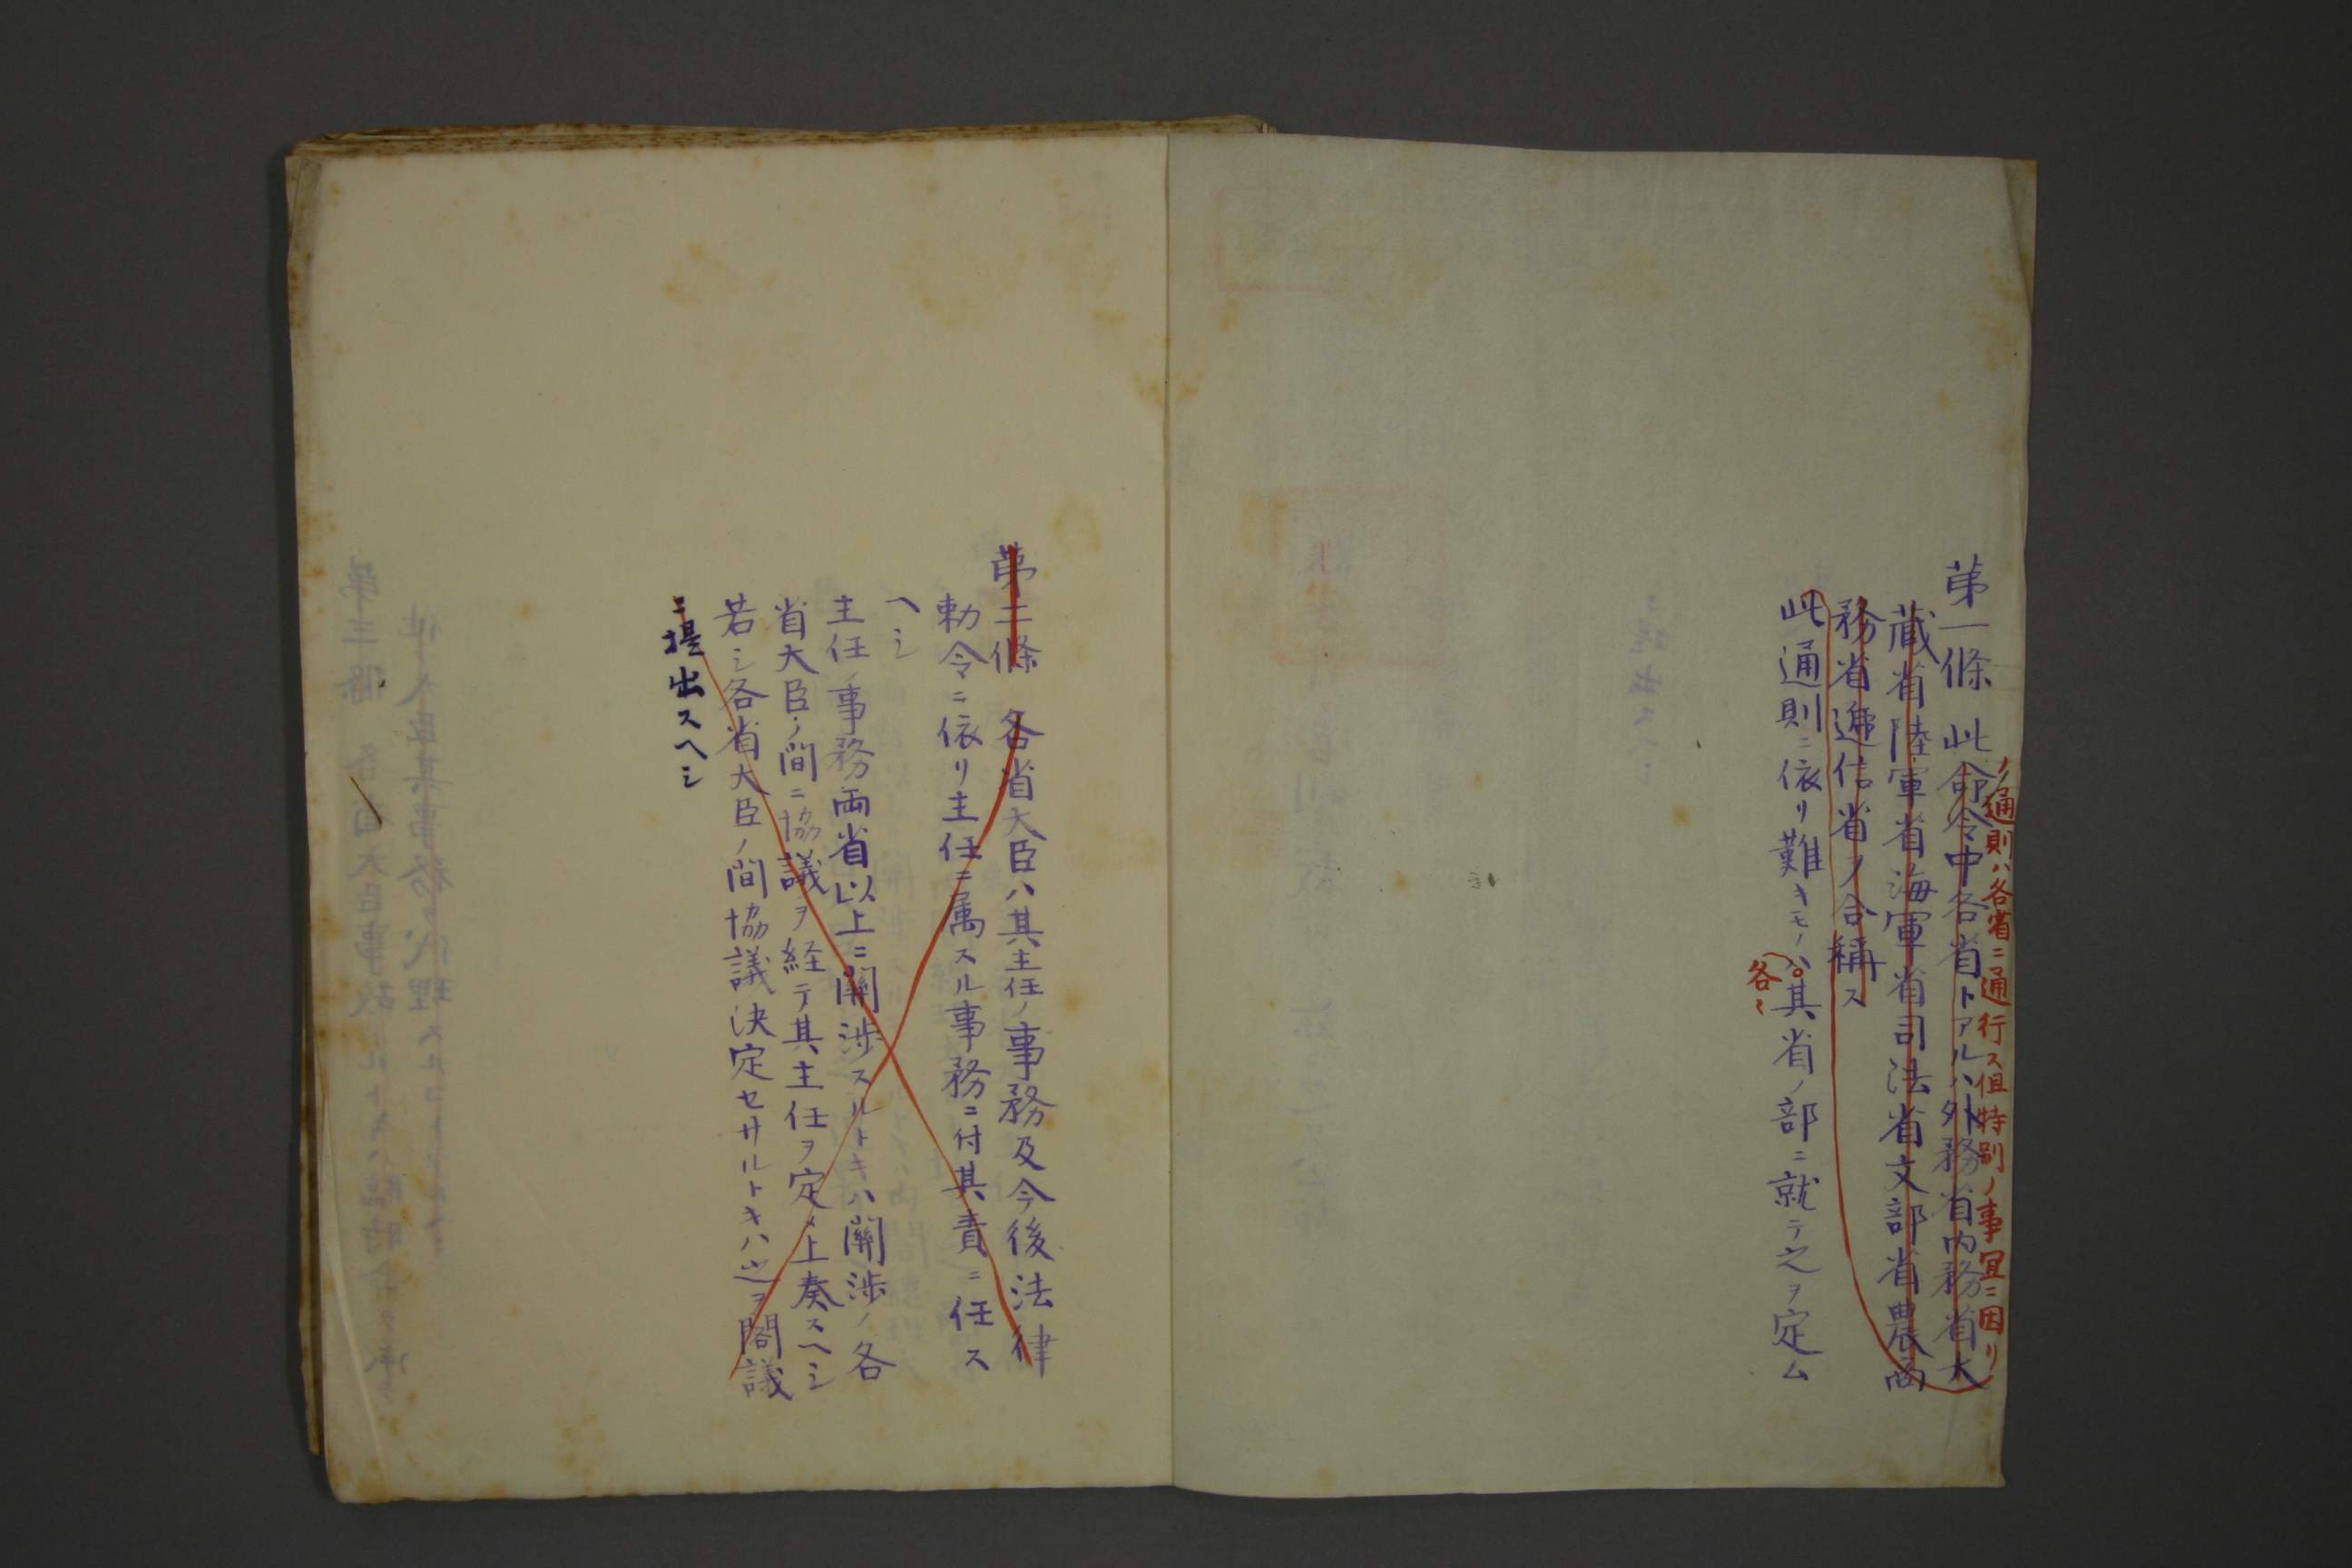 ノ通則ハ各省ニ通行ス但特別ノ事宜ニ因リ
第一條 此命令中各省トアルハ外務省内務省大
蔵省陸軍省海軍省司法省文部省農商
務省逓信省ヲ合稱ス
此通則ニ依リ難キモノハ其省ノ部ニ就テ之ヲ定ム
各〻
第二條 各省大臣ハ其主任ノ事務及今後法律
勅令ニ依リ主任ニ属スル事務ニ付其責ニ任ス
ヘシ
主任ノ事務両省以上ニ關渉スルトキハ關渉ノ各
省大臣ノ間ニ協議ヲ経テ其主任ヲ定メ上奏スヘシ
若シ各省大臣ノ間協議決定セサルトキハ之ヲ閣議
ニ提出スヘシ